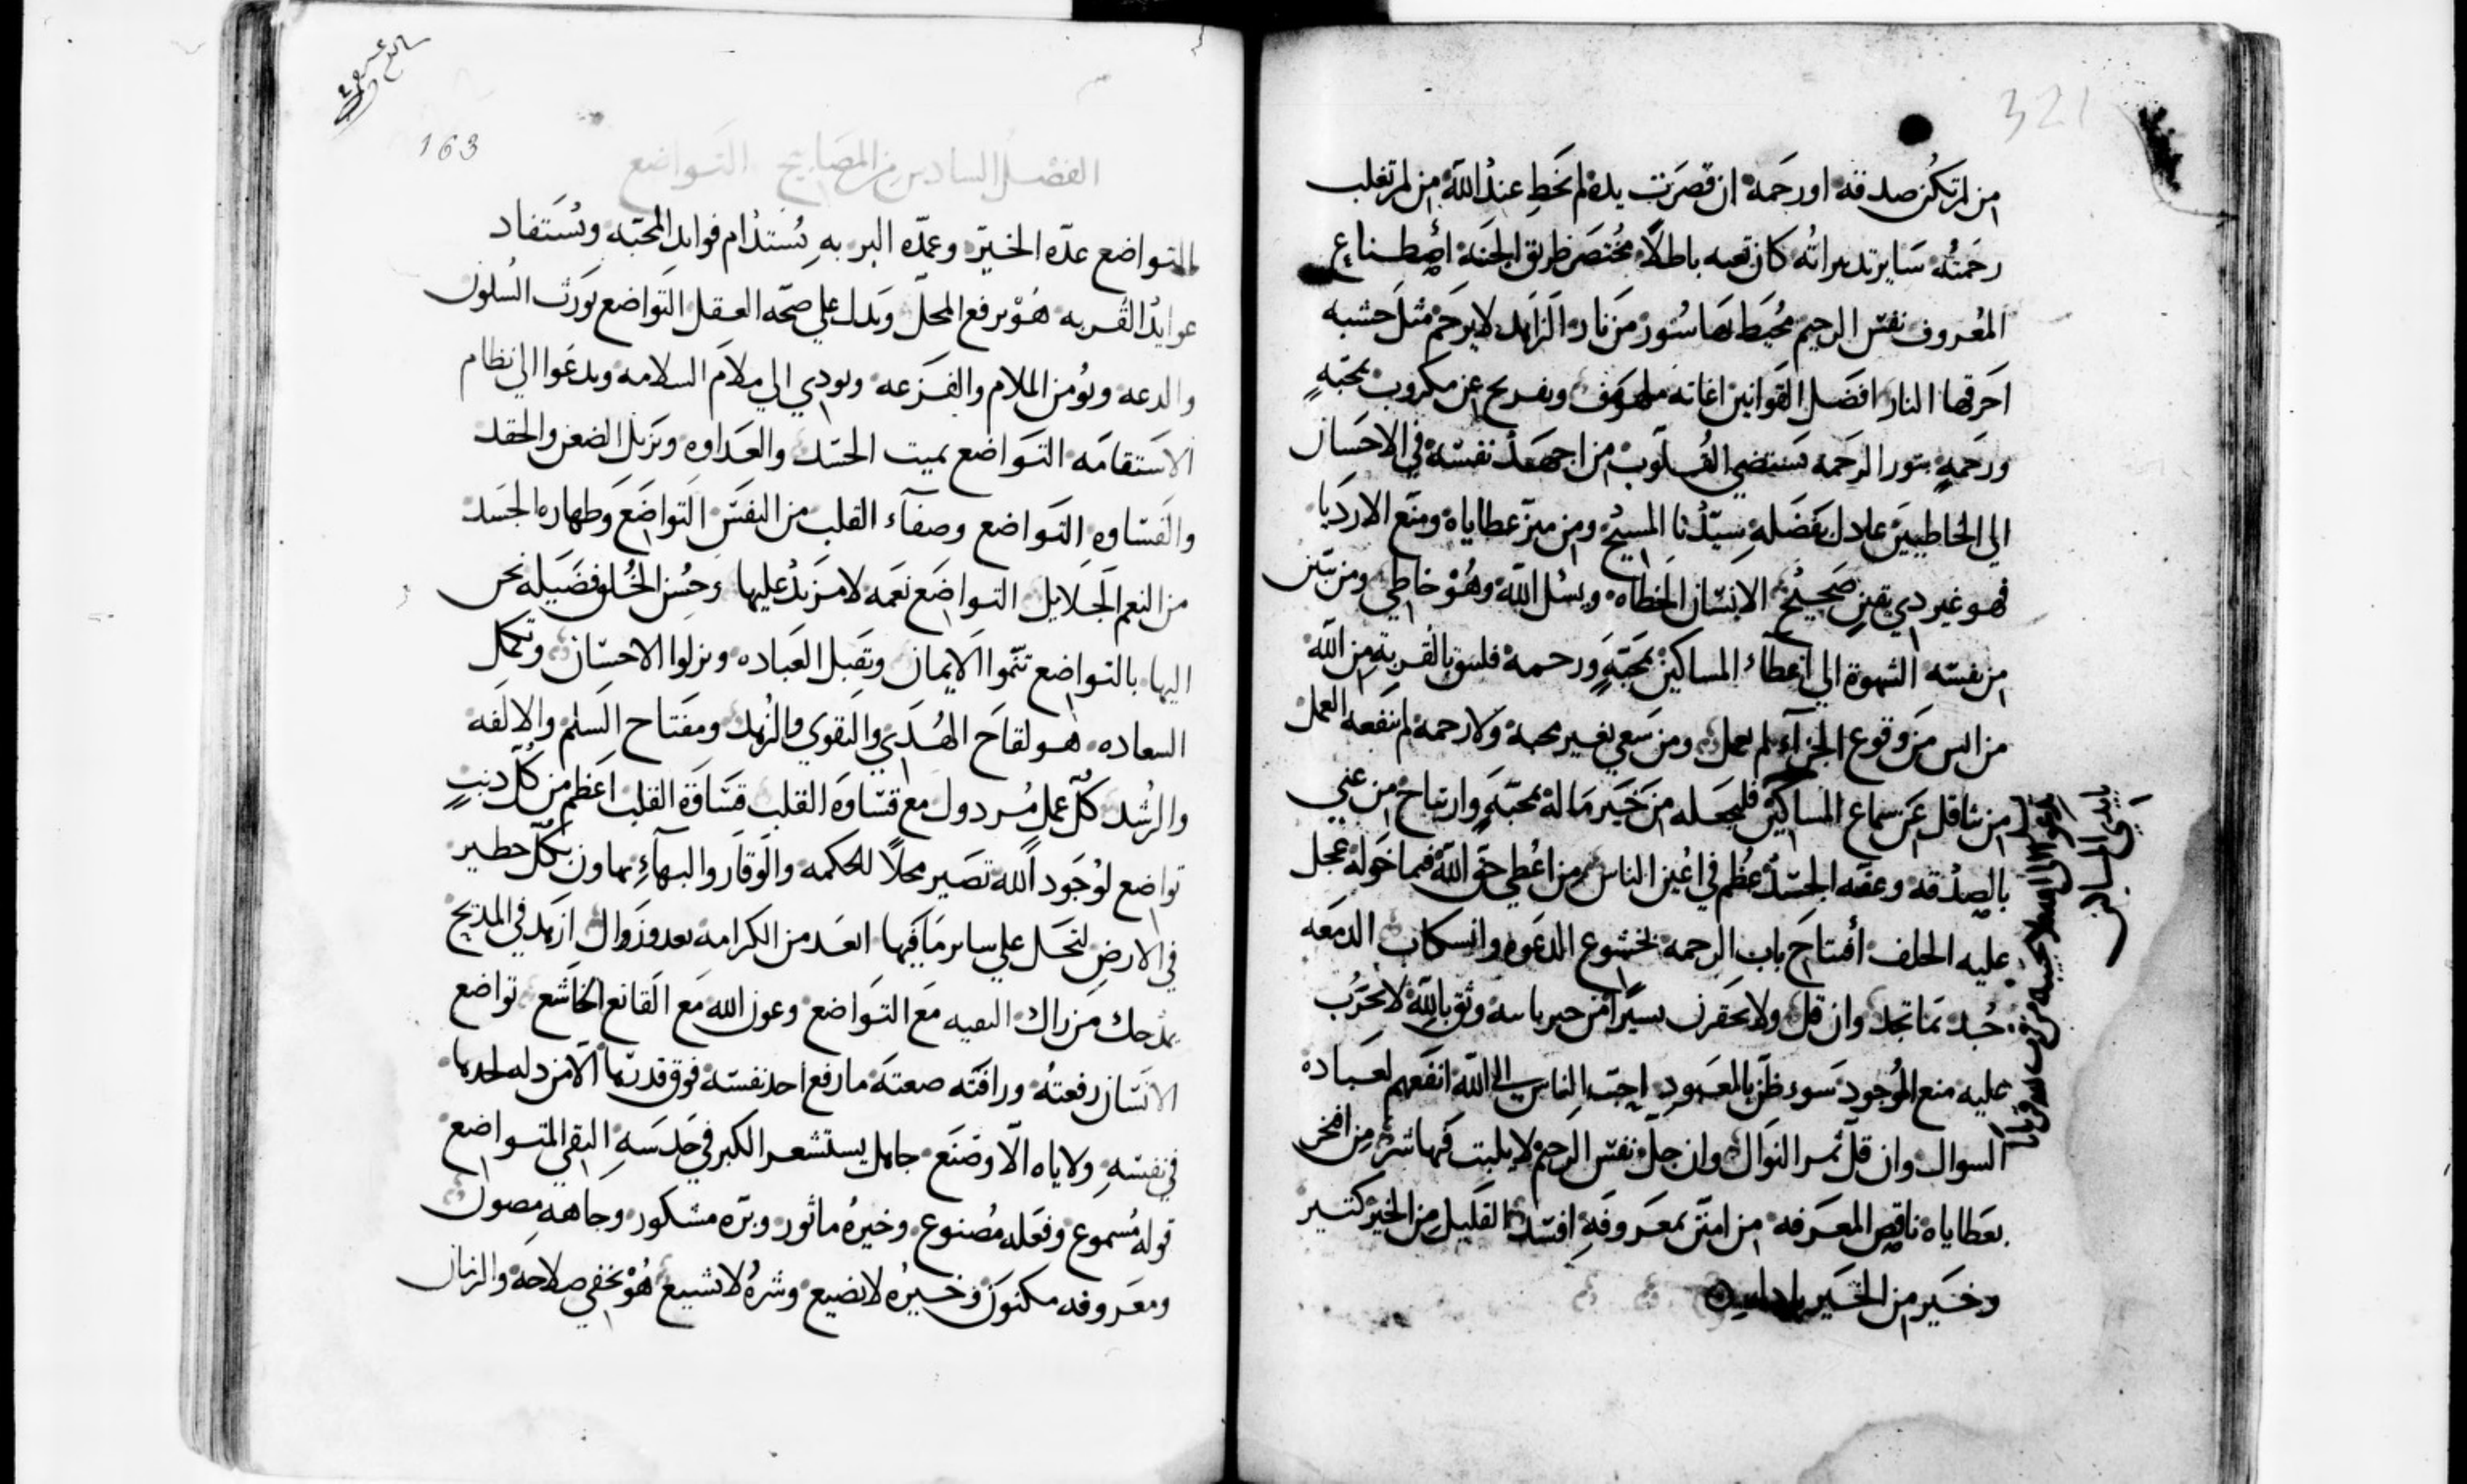 321
من لم تكن صدقته او رحمة ان قصرت يده لم يخط عند الله من لم تغلب
رحمته ساير تدبيراته كان تعبه باطلاً مختصر طريق الجنة اصطناع
المعروف نفس الرحيم محيط بها سور من نار الزاهد لا يرحم مثل خشبه
احرقها النار افضل القوانين اغاثة ملهوف وتفريح عن مكروب بمحبةٍ
ورحمةٍ بنور الرحمة تستضي القلوب من اجهد نفسه في الاحسان
الي الخاطيين عادل بفضله سيدنا المسيح ومن ميز عطاياه ومنع الارديا
فهو غير دي يقين صحيح الانسان الخطاه ويسل الله وهو خاطي ومن تبين
من نفسه الشهوة الي اعطاء المساكين بمحبةٍ ورحمة فليثق بالقربة من الله
من ايس من وقوع الجزاء لم يعمل ومن سعي بغير محبة ولا رحمة لم ينفعه العمل
من تثاقل عن سماع المساكين فليجعله من خير ماله بمحبةٍ وارتياح من عني
بالصدقه وعفه الجسد عظم في اعين الناس من اعطي حق الله فيما خوله عجل
عليه الخلف أفتتاح باب الرحمه بخشوع الدعوه وانسكاب الدمعه
جد بما تجد وان قل ولا تحقرن يسيراً من خير ياسه وثق بالله لا تحزب
عليه منع الموجود سوء ظن بالمعبود احب الناس الى الله انفعهم لعباده
السوال وان قل ثمر النوال وان جل نفس الرحيم لا يلبت فيها شر من افتخر
بعطاياه ناقص المعرفه من امتن بمعروفه افسده القليل من الخير كتير
وخير من الخير فاعله
163
الفصل السادس من المصابيح التواضع
التواضع عدّه الخيره وعمدّه البر به يُستدام فوايد المحبّه ويُستفاد
عوايد القربه هو يرفع المحلّ ويدل علي صحّه العقل التواضع يورث السلون
والدعه ويؤمن الملام والفزعه ويودي الي ملام السلامه ويدعوا الي نظام
الاستقامه التواضع يميت الحسد والعداوه ويزيل الضغن والحقد
والقساوه التواضع وصفآء القلب من النفس التواضع وطهارة الجسد
من النعم الجلايل التواضع نعمه لا مزيد عليها وحسن الخلق فضيله نحن
اليها بالتواضع تنموا الايمان وتقبل العباده ويزلوا الاحسان وتكمل
السعاده هو لقاح الهدي والتقوي والزهد ومفتاح السلم والالفه
والرشد كلّ عمل مردول مع قساوة القلب قساوة القلب اعظم من كل دنبٍ
تواضع لوجود الله تصير محلاً للحكمه والوقار والبهآء تهاون بكل خطير
في الارض لتحل علي ساير ما فيها ابعد من الكرامه بعد وزوال ازهد في المديح
يمدحك من راك البغيه مع التواضع وعون الله مع القانع الخاشع تواضع
الانسان رفعته ورافته صعته ما رفع احد نفسه فوق قدرها الا من دله لحدها
في نفسه ولا ياه الا وضع جاهل يستشعر الكبر في حدسه التقي المتواضع
قوله مسموع وفعله مصنوع وخيره ماثور وبره مشكور وجاهه مصون
ومعروفه مكنون وخيره لا يضيع وشره لا تشييع هو يخفي صلاحه والزمان